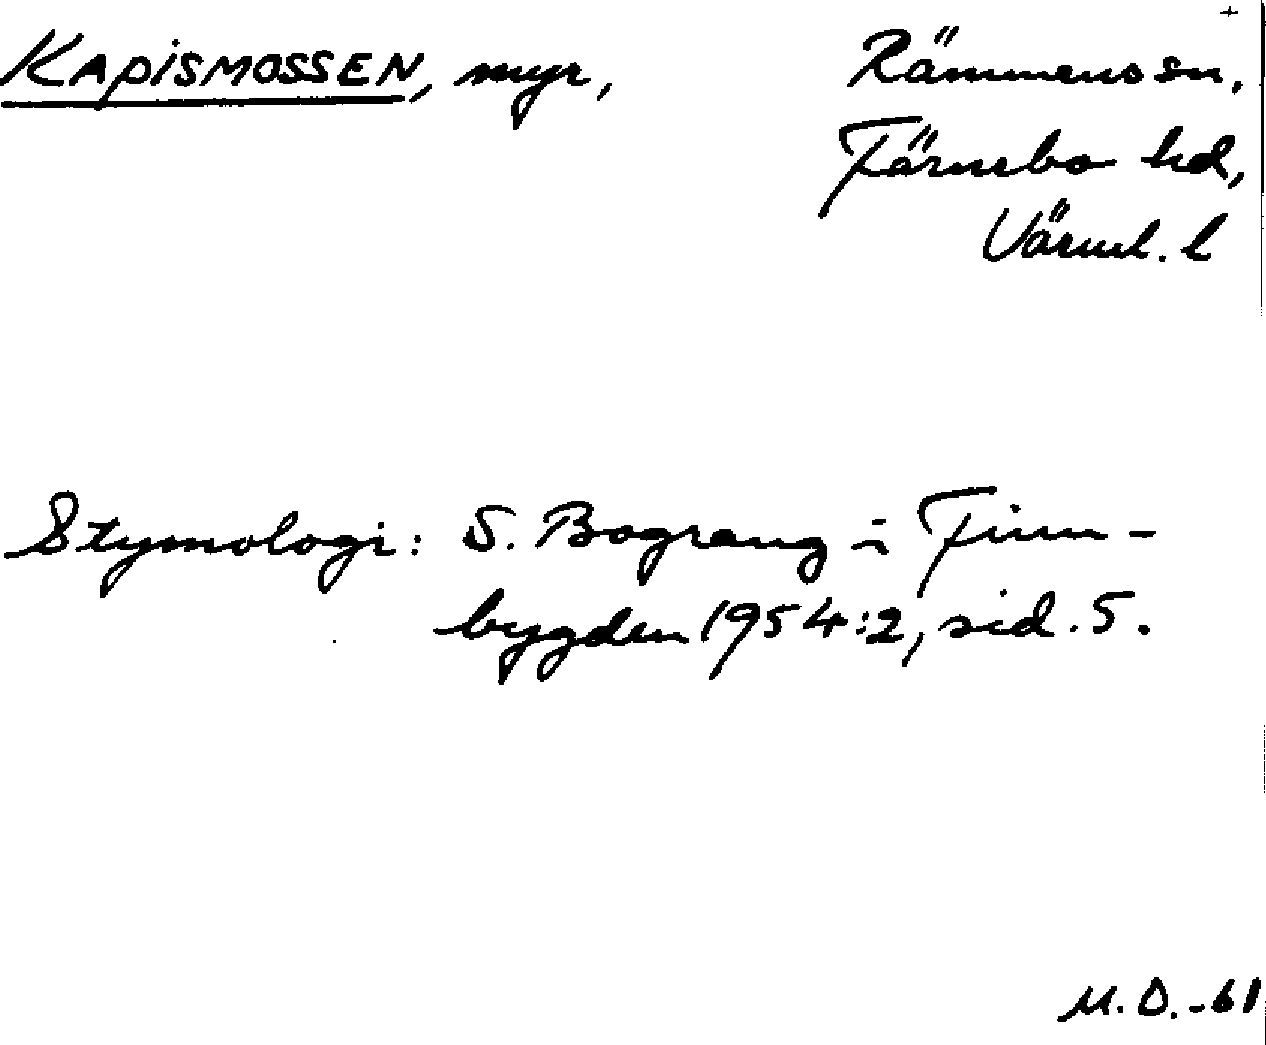 KAPISMOSSEN, myr, Rämmens sn,
Färnebo hd,
Värml. l
Etymologi: S. Bograng i Finn-
bygden 1954:2, sid. 5.
M.D. -61